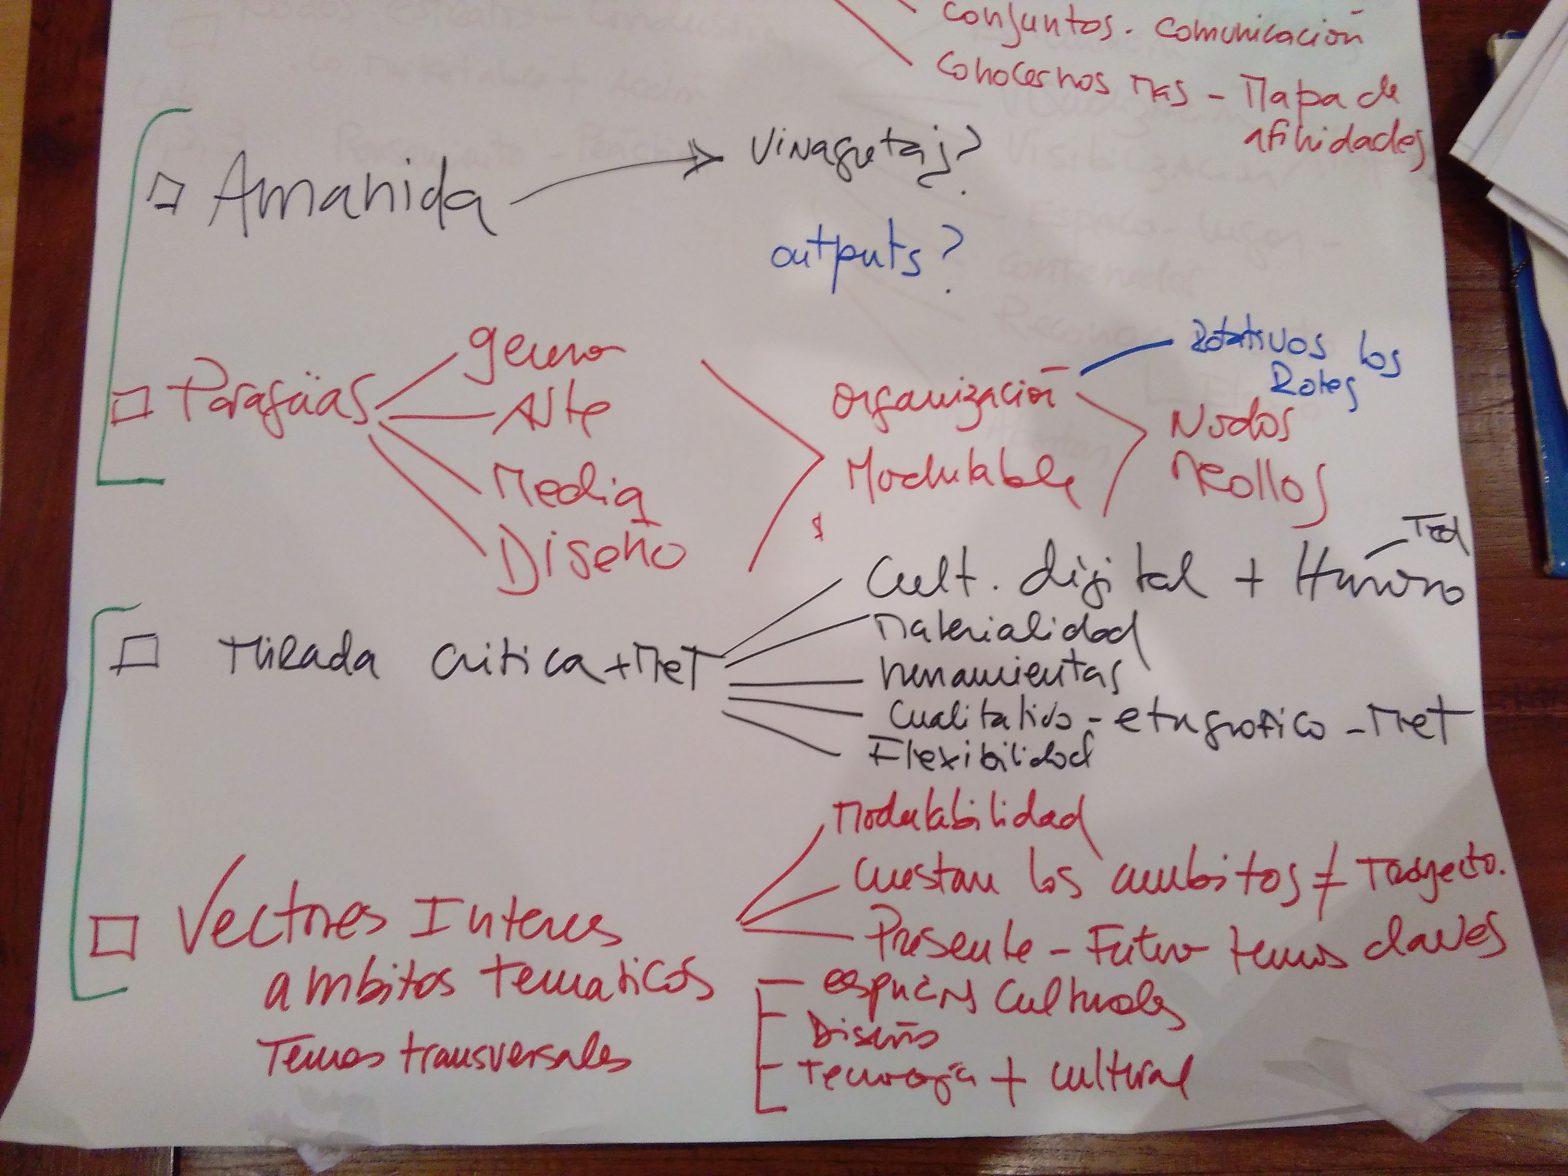 conjuntos. comunicación
conocernos mas - Mapa de
afinidades
Amanida
vinagreta?
outputs?
Paragüas
genero
Arte
Media
Diseño
organización
Modulable
Rotativos los
Roles
Nodos
Mirada critica + MeT
Cult. digital + Humano
Materialidad
herramientas
Cualitativo - etnografico - MeT
Flexibilidad
Vectores Interes
ambitos tematicos
Temas transversales
Modulabilidad
los ambitos ≠ Trayecto.
Presente - Futuro temas claves
espacios culturales
Diseño
Tecnología + cultural